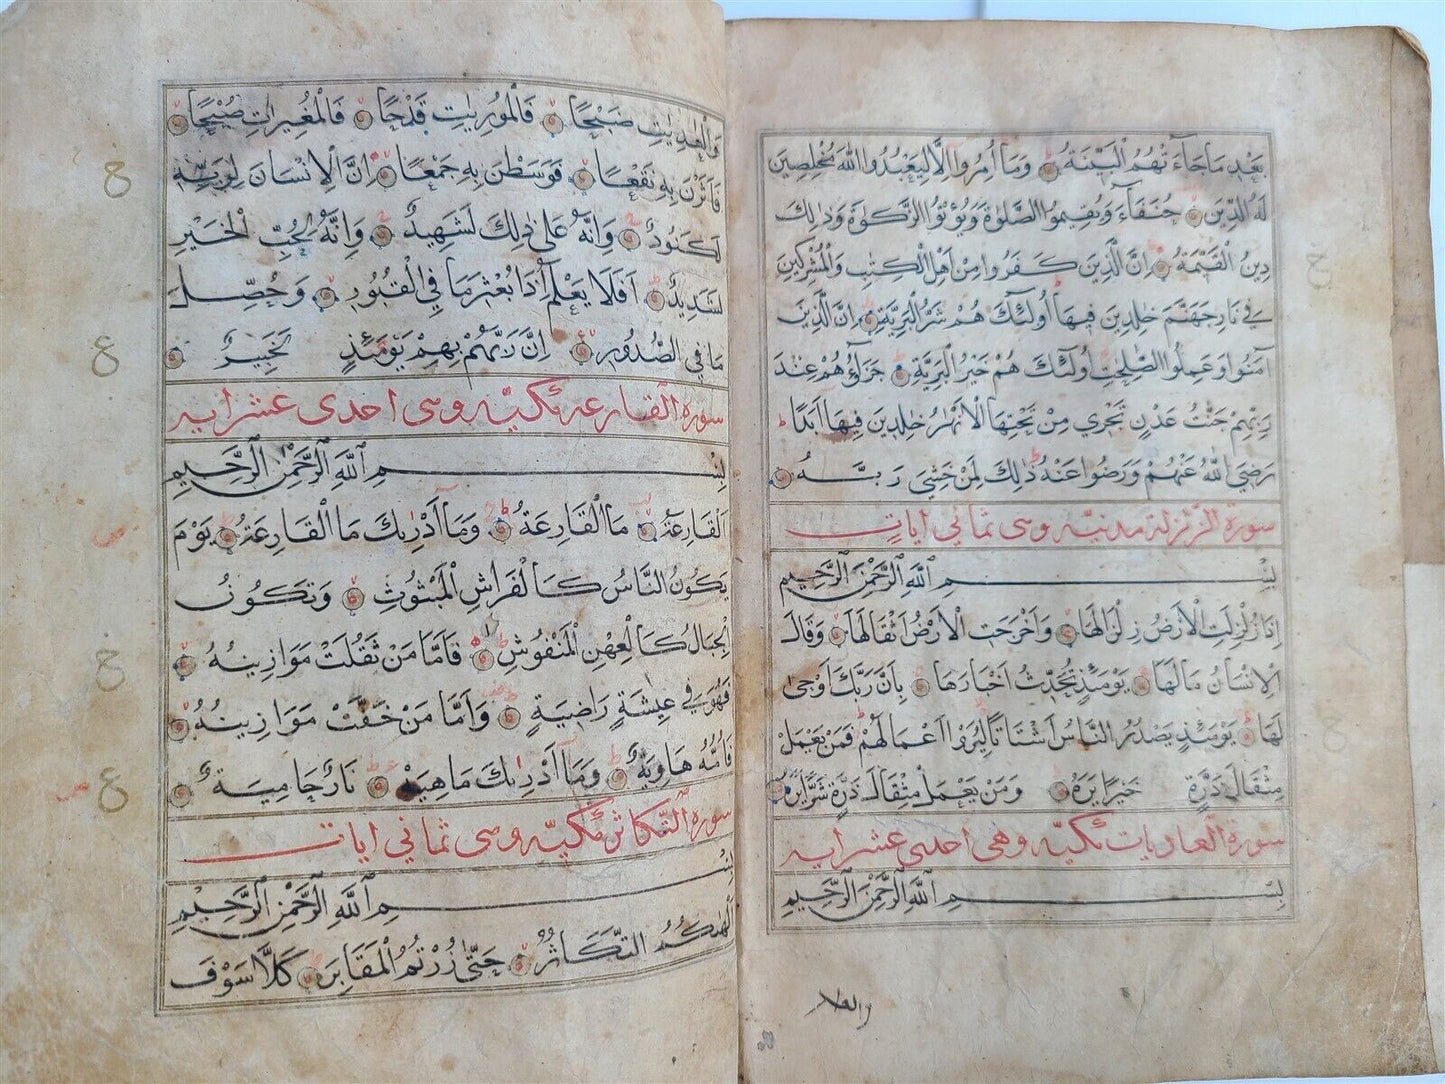 بَعْدِ مَا جَاءَتْهُمُ الْبَيِّنَةُ وَمَا اُمِرُوا اِلَّا لِيَعْبُدُوا اللّٰهَ مُخْلِصِينَ
لَهُ الدِّينَ حُنَفَآءَ وَيُقِيمُوا الصَّلٰوةَ وَيُؤْتُوا الزَّكٰوةَ وَذٰلِكَ
دِينُ الْقَيِّمَةِ اِنَّ الَّذِينَ كَفَرُوا مِنْ اَهْلِ الْكِتٰبِ وَالْمُشْرِكِينَ
فِي نَارِ جَهَنَّمَ خٰلِدِينَ فِيهَا اُولٰٓئِكَ هُمْ شَرُّ الْبَرِيَّةِ اِنَّ الَّذِينَ
اٰمَنُوا وَعَمِلُوا الصّٰلِحٰتِ اُولٰٓئِكَ هُمْ خَيْرُ الْبَرِيَّةِ جَزَآؤُهُمْ عِنْدَ
رَبِّهِمْ جَنّٰتُ عَدْنٍ تَجْرِي مِنْ تَحْتِهَا الْاَنْهٰرُ خٰلِدِينَ فِيهَا اَبَدًا
رَضِيَ اللّٰهُ عَنْهُمْ وَرَضُوا عَنْهُ ذٰلِكَ لِمَنْ خَشِيَ رَبَّهُ
سورة الزلزلة مدنية وهى ثماني ايات
بِسْمِ اللّٰهِ الرَّحْمٰنِ الرَّحِيمِ
اِذَا زُلْزِلَتِ الْاَرْضُ زِلْزَالَهَا وَاَخْرَجَتِ الْاَرْضُ اَثْقَالَهَا وَقَالَ
الْاِنْسَانُ مَا لَهَا يَوْمَئِذٍ تُحَدِّثُ اَخْبَارَهَا بِاَنَّ رَبَّكَ اَوْحٰى
لَهَا يَوْمَئِذٍ يَصْدُرُ النَّاسُ اَشْتَاتًا لِيُرَوْا اَعْمَالَهُمْ فَمَنْ يَعْمَلْ
مِثْقَالَ ذَرَّةٍ خَيْرًا يَرَهُ وَمَنْ يَعْمَلْ مِثْقَالَ ذَرَّةٍ شَرًّا يَرَهُ
سورة العاديات مكية وهى احدى عشر اية
بِسْمِ اللّٰهِ الرَّحْمٰنِ الرَّحِيمِ
وَالْعٰدِيٰتِ ضَبْحًا فَالْمُورِيٰتِ قَدْحًا فَالْمُغِيرَاتِ صُبْحًا
فَاَثَرْنَ بِهِ نَقْعًا فَوَسَطْنَ بِهِ جَمْعًا اِنَّ الْاِنْسَانَ لِرَبِّهِ
لَكَنُودٌ وَاِنَّهُ عَلٰى ذٰلِكَ لَشَهِيدٌ وَاِنَّهُ لِحُبِّ الْخَيْرِ
لَشَدِيدٌ اَفَلَا يَعْلَمُ اِذَا بُعْثِرَ مَا فِي الْقُبُورِ وَحُصِّلَ
مَا فِي الصُّدُورِ اِنَّ رَبَّهُمْ بِهِمْ يَوْمَئِذٍ لَخَبِيرٌ
سورة القارعة مكية وهى احدى عشر اية
بِسْمِ اللّٰهِ الرَّحْمٰنِ الرَّحِيمِ
اَلْقَارِعَةُ مَا الْقَارِعَةُ وَمَا اَدْرٰىكَ مَا الْقَارِعَةُ يَوْمَ
يَكُونُ النَّاسُ كَالْفَرَاشِ الْمَبْثُوثِ وَتَكُونُ
الْجِبَالُ كَالْعِهْنِ الْمَنْفُوشِ فَاَمَّا مَنْ ثَقُلَتْ مَوَازِينُهُ
فَهُوَ فِي عِيشَةٍ رَاضِيَةٍ وَاَمَّا مَنْ خَفَّتْ مَوَازِينُهُ
فَاُمُّهُ هَاوِيَةٌ وَمَا اَدْرٰىكَ مَا هِيَهْ نَارٌ حَامِيَةٌ
سورة التكاثر مكية وهى ثماني ايات
بِسْمِ اللّٰهِ الرَّحْمٰنِ الرَّحِيمِ
اَلْهٰىكُمُ التَّكَاثُرُ حَتّٰى زُرْتُمُ الْمَقَابِرَ كَلَّا سَوْفَ